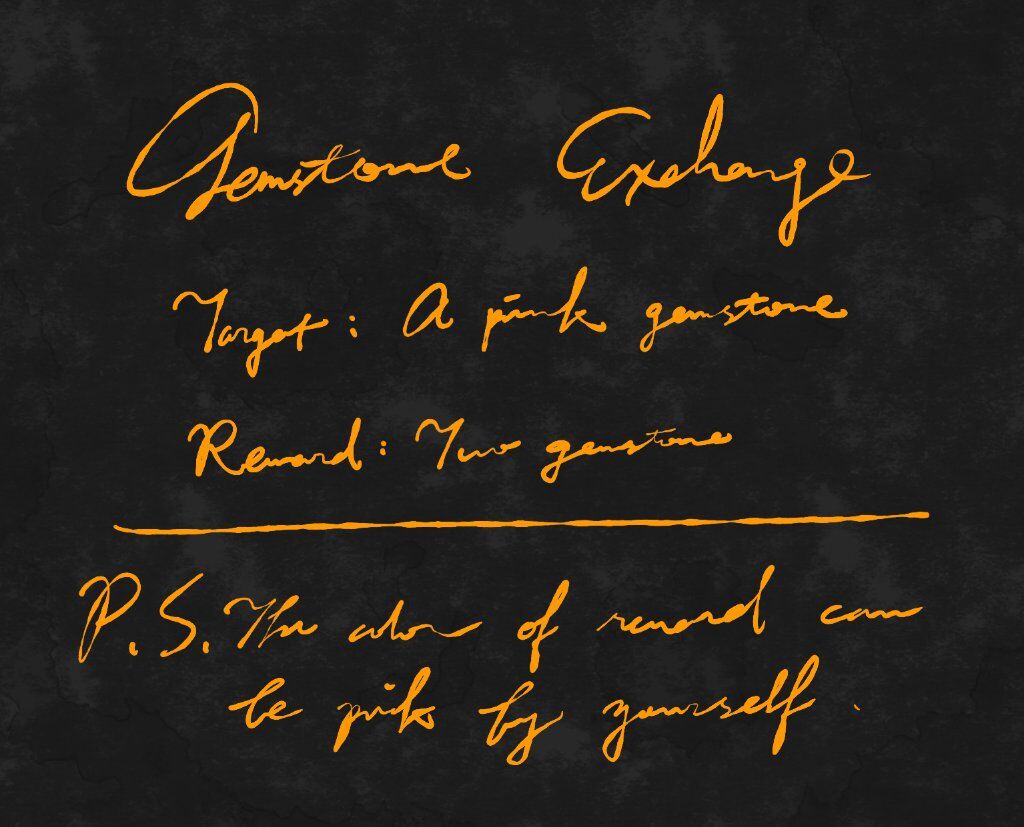 Gemstone Exchange
Target: A pink gemstone
Reward: Two gemstone
P.S. The color of reward can
be pick by yourself.